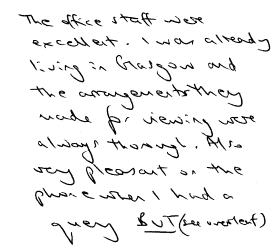 The office staff were
excellent. I was already
living in Glasgow and
the arrangements they
made for viewing were
always thorough. Also
very pleasant on the
phone when I had a
query BUT (see overleaf)